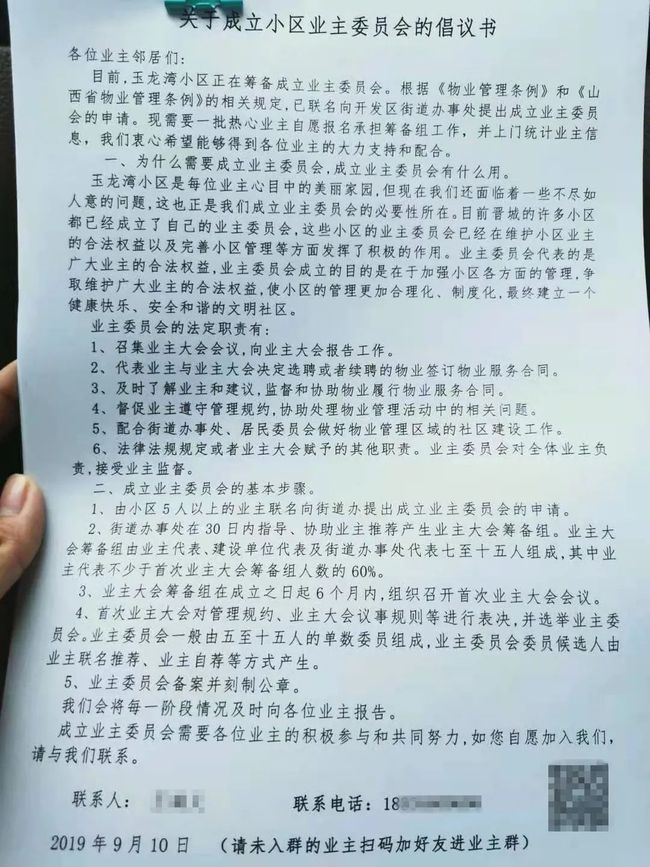 关于成立小区业主委员会的倡议书
各位业主邻居们：
目前，玉龙湾小区正在筹备成立业主委员会。根据《物业管理条例》和《山
西省物业管理条例》的相关规定，已联名向开发区街道办事处提出成立业主委员
会的申请。现需要一批热心业主自愿报名承担筹备组工作，并上门统计业主信
息，我们衷心希望能够得到各位业主的大力支持和配合。
一、为什么需要成立业主委员会，成立业主委员会有什么用。
玉龙湾小区是每位业主心目中的美丽家园，但现在我们还面临着一些不尽如
人意的问题，这也正是我们成立业主委员会的必要性所在。目前晋城的许多小区
都已经成立了自己的业主委员会，这些小区的业主委员会已经在维护小区业主
的合法权益以及完善小区管理等方面发挥了积极的作用。业主委员会代表的是
广大业主的合法权益，业主委员会成立的目的是在于加强小区各方面的管理，争
取维护广大业主的合法权益，使小区的管理更加合理化、制度化，最终建立一个
健康快乐、安全和谐的文明社区。
业主委员会的法定职责有：
1、召集业主大会会议，向业主大会报告工作。
2、代表业主与业主大会决定选聘或者续聘的物业签订物业服务合同。
3、及时了解业主和建议，监督和协助物业履行物业服务合同。
4、督促业主遵守管理规约，协助处理物业管理活动中的相关问题。
5、配合街道办事处、居民委员会做好物业管理区域的社区建设工作。
6、法律法规规定或者业主大会赋予的其他职责。业主委员会对全体业主负
责，接受业主监督。
二、成立业主委员会的基本步骤。
1、由小区5人以上的业主联名向街道办提出成立业主委员会的申请。
2、街道办事处在30日内指导、协助业主推荐产生业主大会筹备组。业主大
会筹备组由业主代表、建设单位代表及街道办事处代表七至十五人组成，其中业
主代表不少于首次业主大会筹备组人数的60%。
3、业主大会筹备组在成立之日起6个月内，组织召开首次业主大会会议。
4、首次业主大会对管理规约、业主大会议事规则等进行表决，并选举业主委
员会。业主委员会一般由五至十五人的单数委员组成，业主委员会委员候选人由
业主联名推荐、业主自荐等方式产生。
5、业主委员会备案并刻制公章。
我们会将每一阶段情况及时向各位业主报告。
成立业主委员会需要各位业主的积极参与和共同努力，如您自愿加入我们，
请与我们联系。
联系人： 联系电话：18
2019年9月10日 （请未入群的业主扫码加好友进业主群）